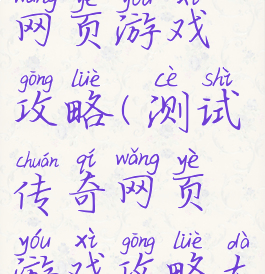 wǎng yè yóu xì
网页游戏
gōng lüè cè shì
攻略(测试
chuán qí wǎng yè
传奇网页
yóu xì gōng lüè dà
游戏攻略大